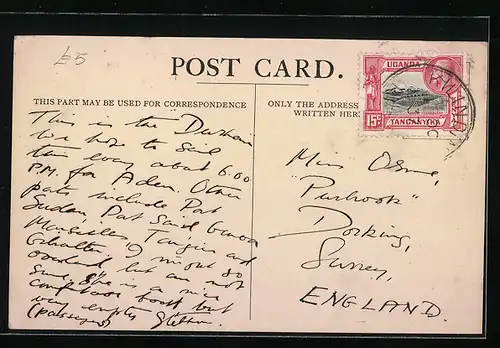 £5
POST CARD.
THIS PART MAY BE USED FOR CORRESPONDENCE
ONLY THE ADDRESS
WRITTEN HERE
UGANDA
15c
TANGANYIKA
This is the "Durham
We hope to sail
this evening about 6.00
P.M. for Aden. Other
ports include Port
Sudan, Port Said Genoa
Marseilles, Tangier and
Gibraltar. I may go
overland but am not
sure. She is a nice
comfortable boat but
very empty
(passengers)
Miss
"Purbrook"
Dorking,
Surrey,
ENGLAND.